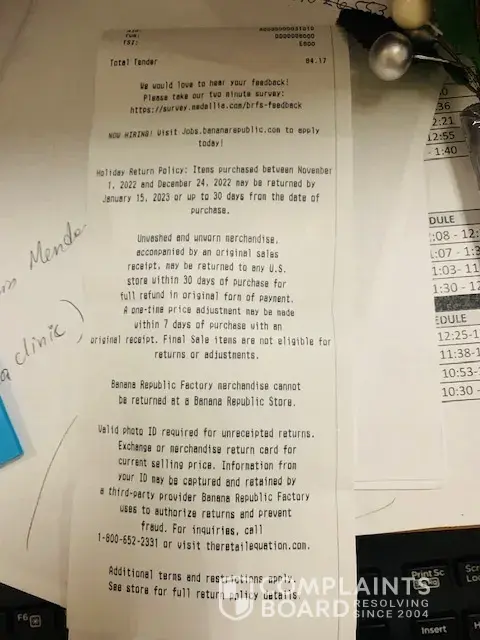 TVR: 0000008000
TSI: E800
Total Tender 84.17
We would love to hear your feedback!
Please take our two minute survey:
https://survey.medallia.com/brfs-feedback
NOW HIRING! Visit Jobs.bananarepublic.com to apply
today!
Holiday Return Policy: Items purchased between November
1, 2022 and December 24, 2022 may be returned by
January 15, 2023 or up to 30 days from the date of
purchase.
Unwashed and unworn merchandise,
accompanied by an original sales
receipt, may be returned to any U.S.
store within 30 days of purchase for
full refund in original form of payment.
A one-time price adjustment may be made
within 7 days of purchase with an
original receipt. Final Sale items are not eligible for
returns or adjustments.
Banana Republic Factory merchandise cannot
be returned at a Banana Republic Store.
Valid photo ID required for unreceipted returns.
Exchange or merchandise return card for
current selling price. Information from
your ID may be captured and retained by
a third-party provider Banana Republic Factory
uses to authorize returns and prevent
fraud. For inquiries, call
1-800-652-2331 or visit theretailequation.com.
Additional terms and restrictions apply.
See store for full return policy details.
clinic)
36
2:21
12:55
- 1:40
DULE
:08 - 12:
:07 - 1:3
1:03- 11
1:30 - 12
EDULE
12:25-1
11:38-1
10:53-1
10:30 -
F6
Print Sc
Scr
Lo
Insert
Hom
COMPLAINTS
BOARD RESOLVING
SINCE 2004